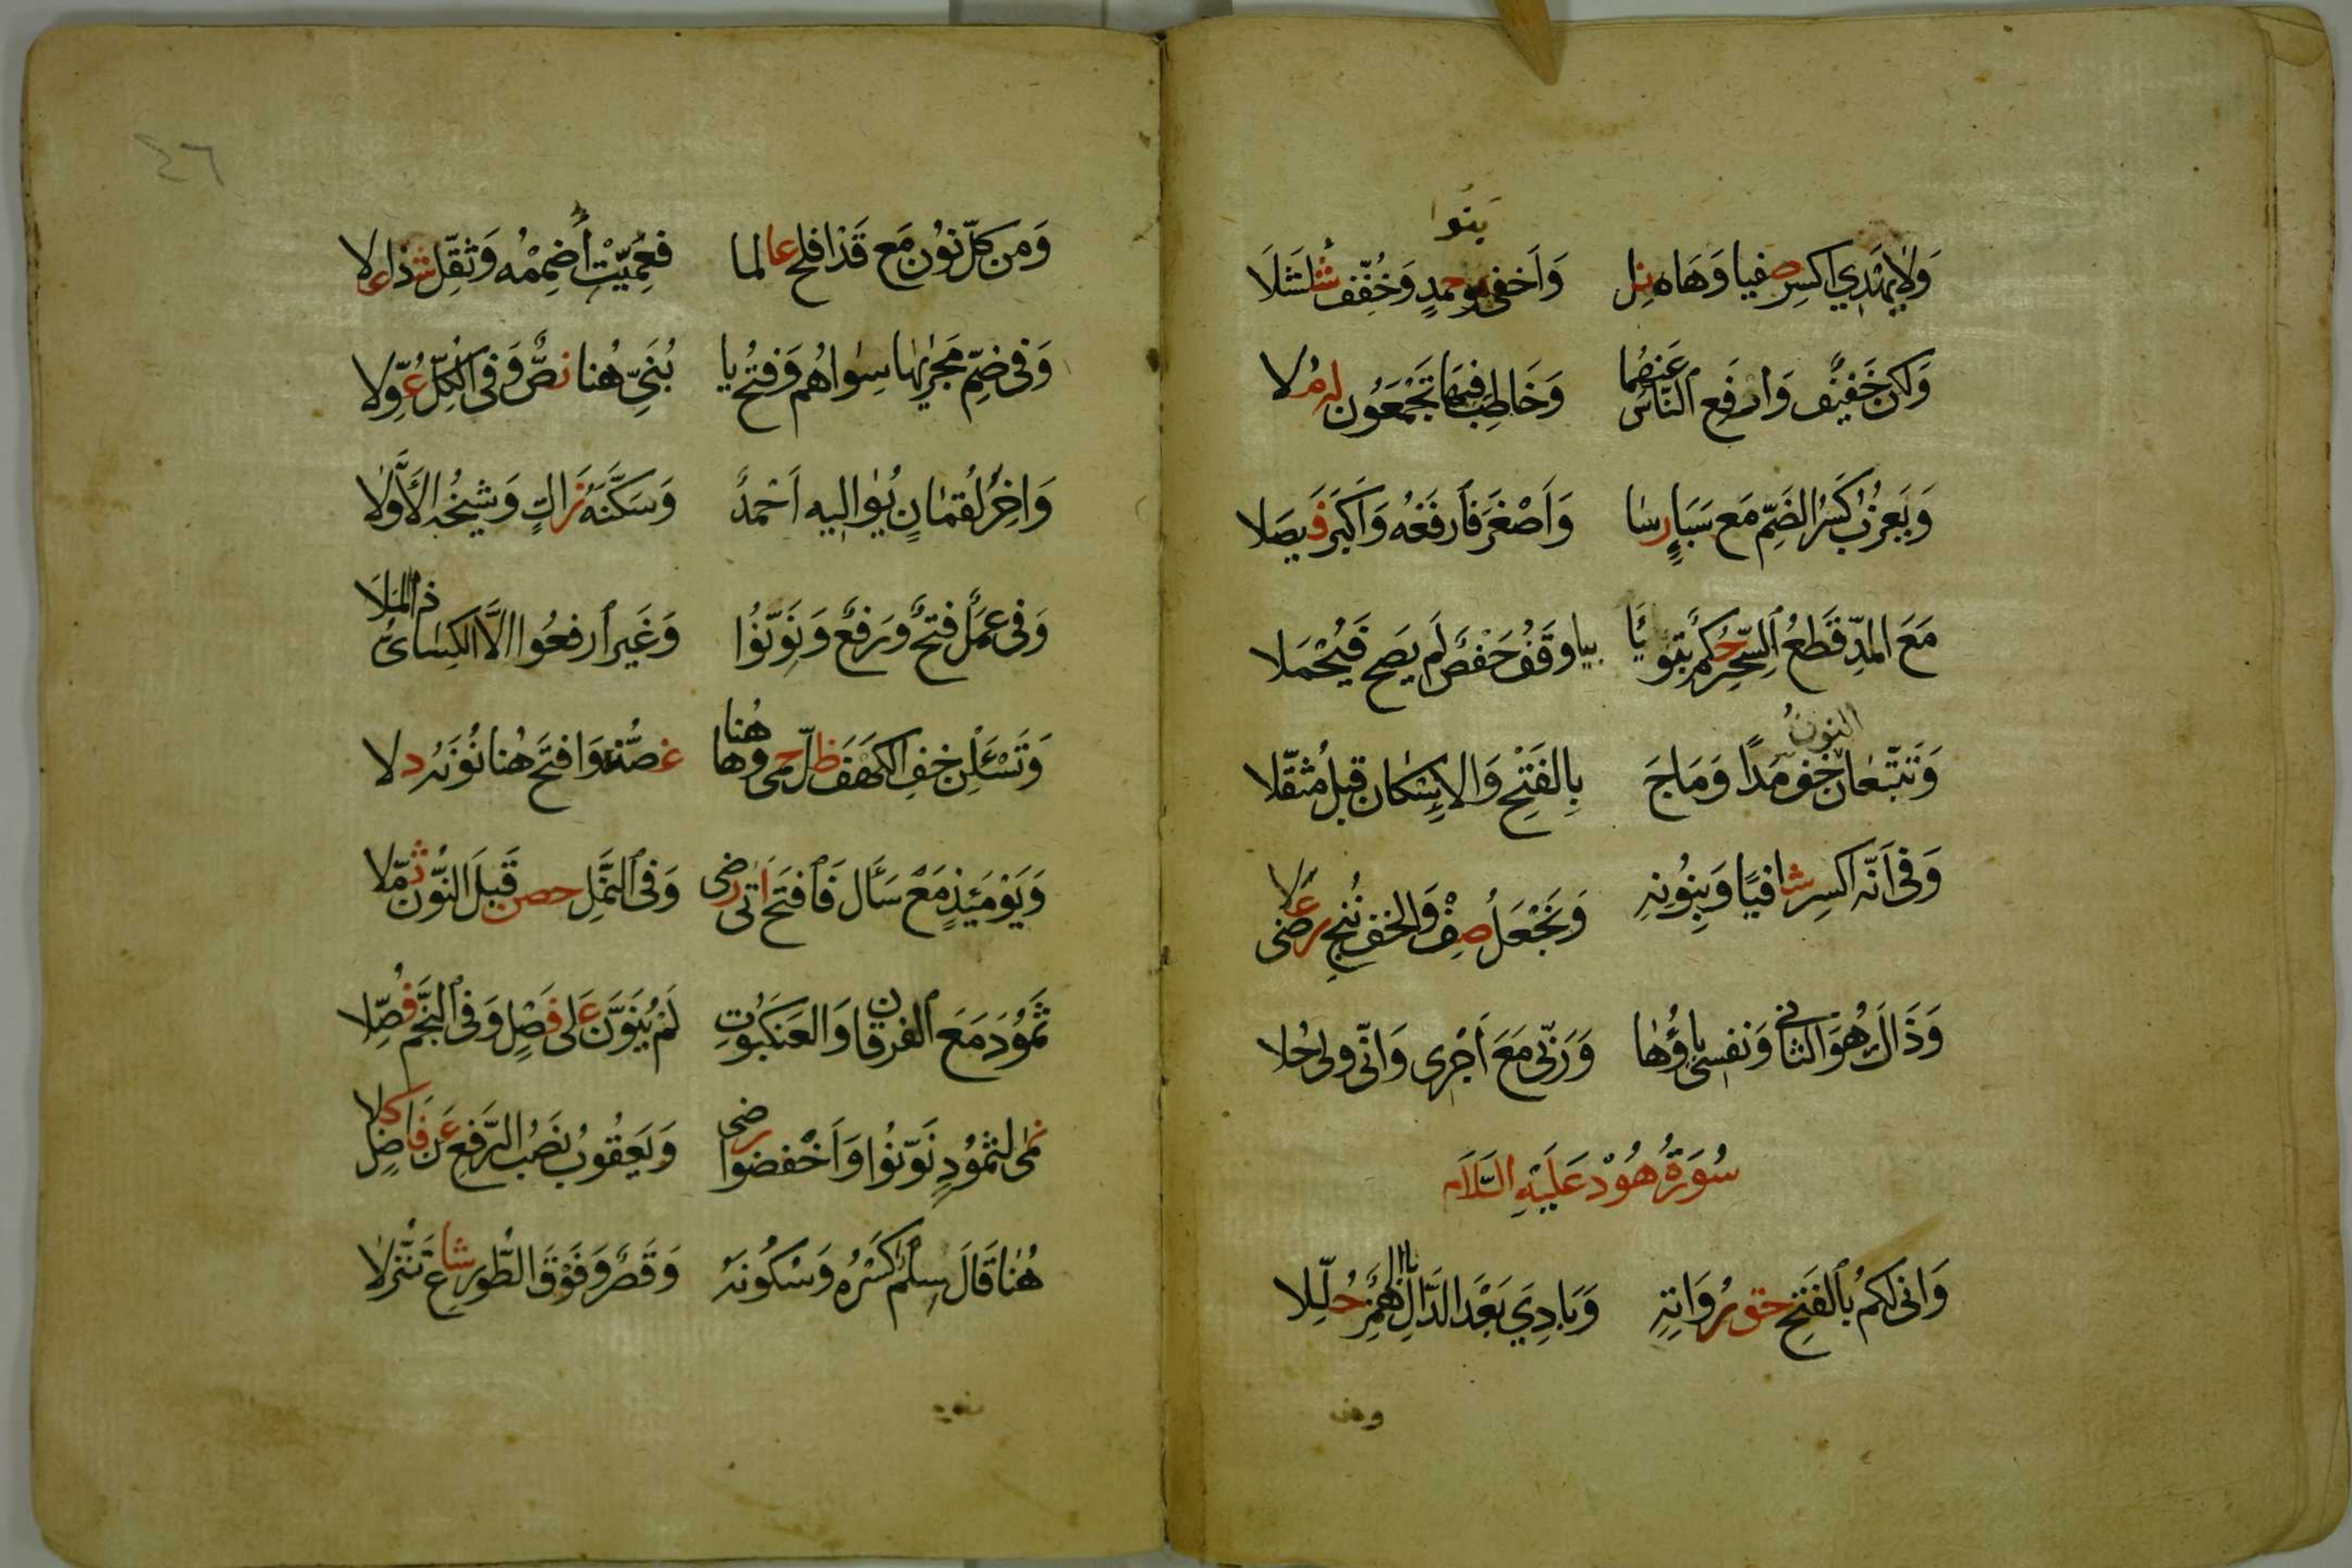 وَلَا يَهْدِي اكسِر صفيا وَهَاه نل وَأَخفى بنوا حمدٍ وَخُفِّف شُلْشُلَا
وَلكن خَفيفٌ وَارفَعِ النَّاسُ عَنهُما وَخَاطب فيها تَجْمَعُون له مُلا
وَيَعزُبُ كَسرُ الضَّمِّ مَع سَبَإٍ رسا وَأَصْغَرَ فَارفَعْهُ وَأَكبَر فَيصَلا
مَعَ المَدِّ قَطعُ السِّحْرِ حُكمٌ تبوئا بيا وَقفُ حَفصٍ لَم يَصِح فَيُحْمَلا
وَتَتَّبِعَان النونُ خف مَدًا وَمَاجَ بِالفَتْحِ وَالإِسْكَانِ قبلُ مُثقَّلا
وَفى أَنّه اكسِر شافيًا وَبِنُونِهِ وَنَجْعَلُ صِفْ وَالخف نُنجِ رضى عَلا
وَذَاكَ هُوَ الثانى وَنفسى ياؤُها وَرَبِّى مَعَ أَجْرِى وَإنّى ولى حُلا
سُورَةُ هُوْد عَلَيْهِ السَّلَام
وَإنى لكم بالفَتحِ حق رُوَاتِهِ وَبَادِيَ بَعْدَ الدَّالِ بالهَمْزِ حُلِّلا
ومن
٤٦
وَمِن كلِّ نَوِّن مَع قَدَ افلح عالما فعُمِّيَتْ أُضمُمْه وَثقِّل شذا علا
وَفى ضمِّ مَجْريها سِواهُم وَفتحُ يا بُنَيِّ هُنا نصٌّ وَفى الكلِّ عُوِّلا
وَاخِرَ لُقمَانٍ يُواليه أَحْمَدٌ وَسَكَّنَهُ زَاكٍ وَشيخُه الأَوَّلا
وَفى عمَلٌ فتحٌ وَرَفعٌ وَنَوِّنُوا وَغَيرَ ارفعُوا إلَّا الكسَائى ذا الملَا
وَتَسْئَلْنِ خِفُّ الكَهْفِ ظلّ حمى وهاهُنا غصنه وَافتَح هُنا نُونَهُ دلا
وَيَوْمَئِذٍ مَعْ سَأَلَ فَافتَح أَتى رضى وَفى النَّمْلِ حصن قَبلَ النُّون ثمّلا
ثمُودَ مَعَ الفرقان وَالعَنكَبُوتِ لَمْ يُنَوَّن عَلى فَصْلٍ وَفى النَّجم فُصِّلا
نمى لثمُودٍ نَوّنُوا وَاخْفضوا رضى وَيَعقُوبُ نصْبُ الرَّفعِ عَن فَاضِلٍ كلا
هُنا قَالَ سِلمٌ كَسْرُهُ وَسُكُونهُ وَقَصرٌ وَفَوْقَ الطُّور شاع تَنَزَّلا